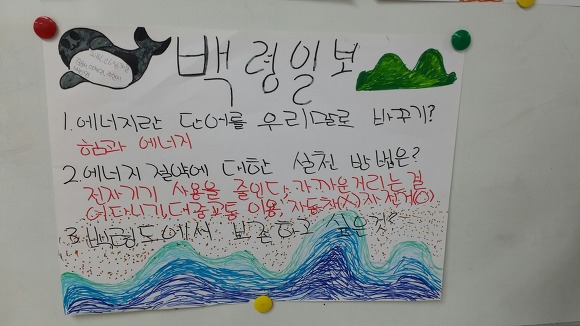 백령일보
1. 에너지란 단어를 우리말로 바꾸기?
힘과 에너지
2. 에너지 절약에 대한 실천 방법은?
전자기기 사용을 줄인다, 가까운거리는 걸
어다니기, 대중교통 이용, 자동차(X) 자전거(O)
3. 백령도에서 보존하고 싶은것?